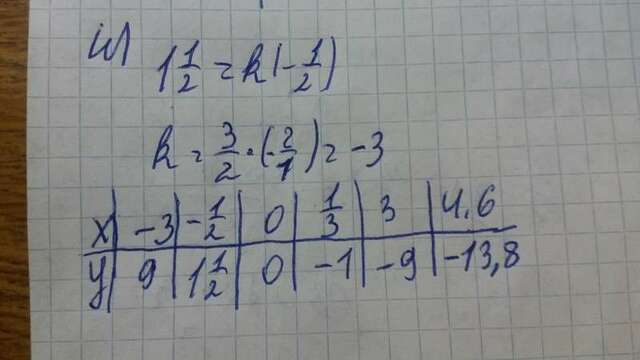 1 1/2 = k(-1/2)
k = 3/2 · (-2/1) = -3
x | -3 | -1/2 | 0 | 1/3 | 3 | 4.6
y | 9 | 1 1/2 | 0 | -1 | -9 | -13,8